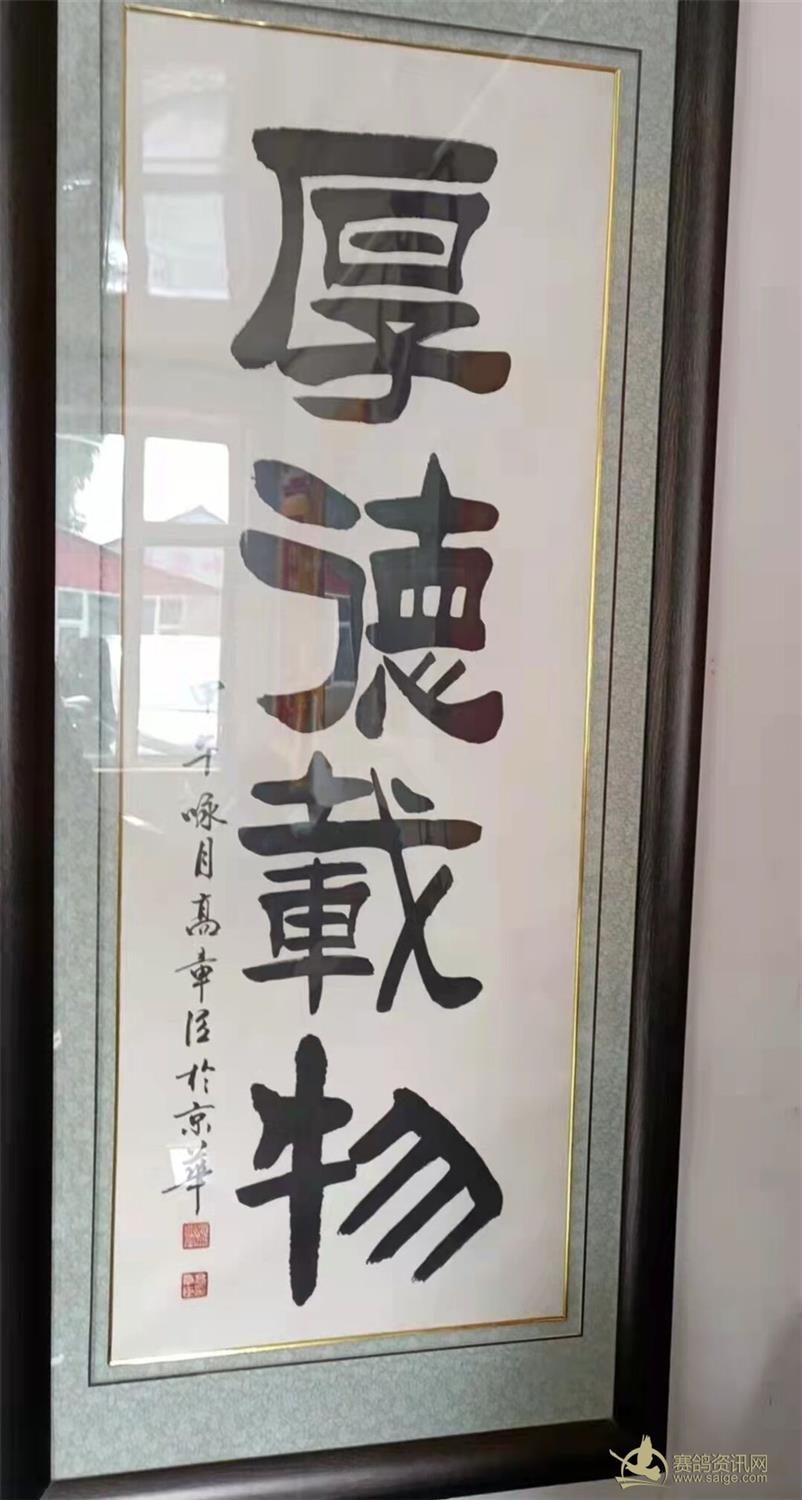 厚德載物
午啄月高章臣於京華
赛鸽资讯网
www.saige.com